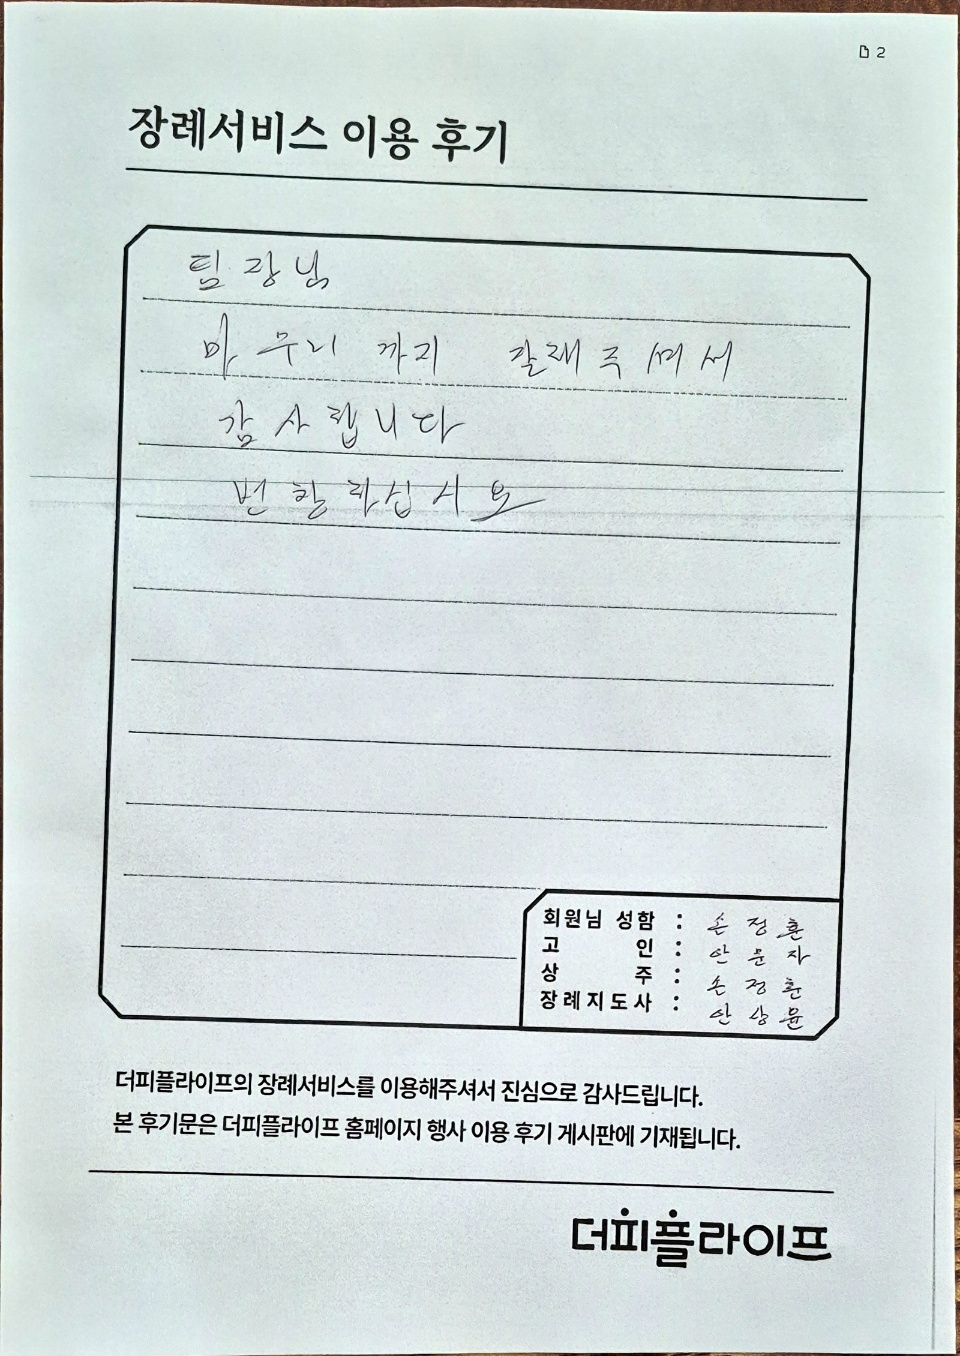 2
장례서비스 이용 후기
팀장님
마무리까지 잘해주셔서
감사합니다
번창하십시요
회원님 성함 : 손정훈
고 인 : 안문자
상 주 : 손정훈
장례지도사 : 안상윤
더피플라이프의 장례서비스를 이용해주셔서 진심으로 감사드립니다.
본 후기문은 더피플라이프 홈페이지 행사 이용 후기 게시판에 기재됩니다.
더피플라이프